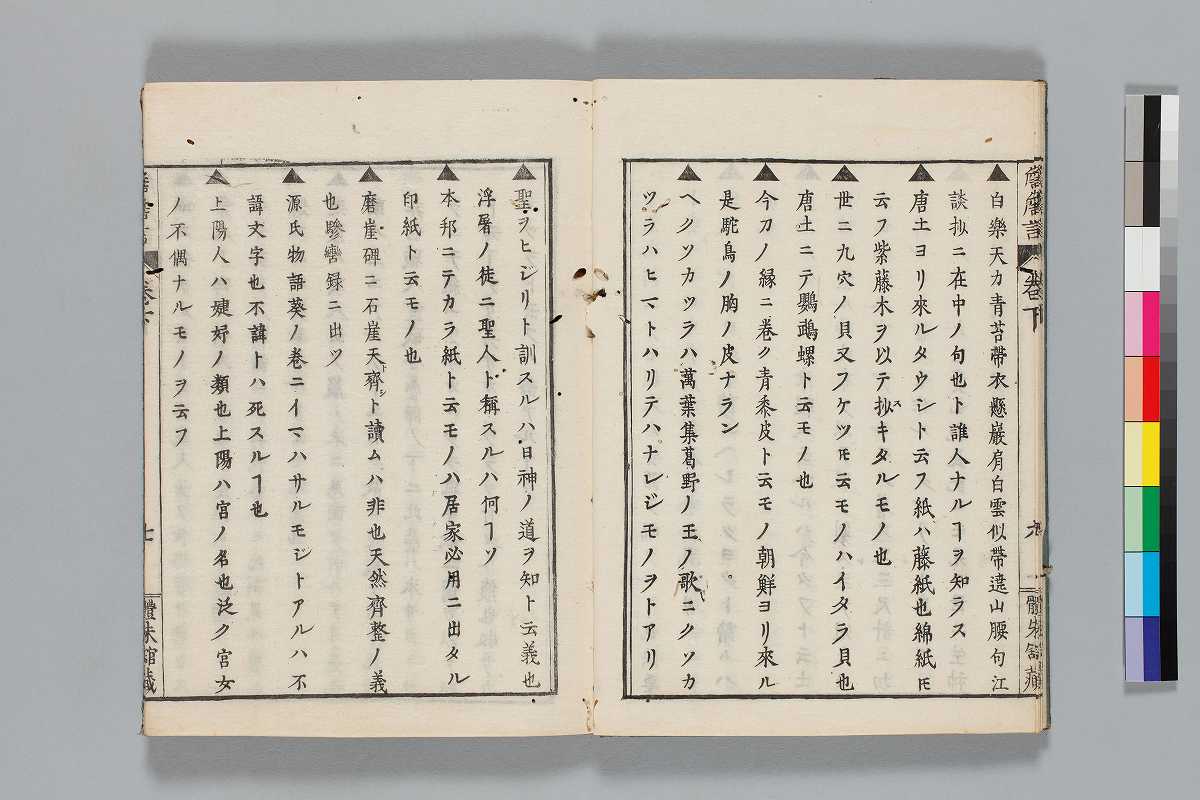 ▲白樂天カ青苔帶衣懸巖肩白雲似帶遶山腰句江
談抄ニ在中ノ句也ト誰人ナルヿヲ知ラス
▲唐土ヨリ來ルタウシト云フ紙ハ藤紙也綿紙ㇳモ
云フ紫藤木ヲ以テ抄スキタルモノ也
▲世ニ九穴ノ貝又フケツㇳモ云モノハイタラ貝也
唐土ニテ鸚鵡螺ト云モノ也
▲今刀ノ縁ニ卷ク青黍皮ト云モノ朝鮮ヨリ來ル
是駝鳥ノ胸ノ皮ナラン
▲ヘクソカツラハ萬葉集葛野ノ王ノ歌ニクソカ
ツラハヒマトハリテハナレジモノヲトアリ
▲聖ヲヒジリト訓スルハ日神ノ道ヲ知ト云義也
浮屠ノ徒ニ聖人ト稱スルハ何ヿソ
▲本邦ニテカラ紙ト云モノハ居家必用ニ出タル
印紙ト云モノ也
▲磨崖碑ニ石崖天齊ト讀ムハ非也天然齊整ノ義
也驂鸞録ニ出ツ
▲源氏物語葵ノ卷ニイマハサルモジトアルハ不
諱文字也不諱トハ死スルヿ也
▲上陽人ハ婕妤ノ類也上陽ハ宮ノ名也泛ク宮女
ノ不偶ナルモノヲ云フ
卷下
七